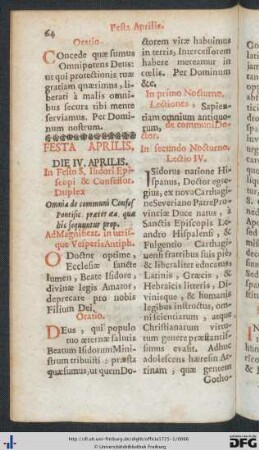 64
Festa Aprilis.
Oratio.
COncede quæsumus
Omnipotens Deus:
ut qui protectionis tuæ
gratiam quæsimus, li-
berati à malis omni-
bus secura tibi mente
serviamus. Per Domi-
num nostrum.
FESTA APRILIS.
DIE IV. APRILIS.
In Festo S. Isidori Epi-
scopi & Confessor.
Duplex
Omnia de communi Confess.
Pontific. præter ea, quæ
hic sequuntur prop.
Ad Magnificat. in utris-
que Vesperis Antiph.
O Doctor optime,
Ecclesiæ sanctæ
lumen, Beate Isidore,
divinæ legis Amator,
deprecare pro nobis
Filium Dei.
Oratio.
DEus, qui populo
tuo æternæ salutis
Beatum Isidorum Mini-
strum tribuisti: præsta
quæsumus, ut quem Do-
ctorem vitæ habuimus
in terris, Intercessorem
habere mereamur in
cœlis. Per Dominum
&c.
In primo Nocturno,
Lectiones, Sapien-
tiam omnium antiquo-
rum, de communi Do-
ctor.
In secundo Nocturno.
Lectio IV.
ISidorus natione Hi-
spanus, Doctor egre-
gius, ex nova Carthagi-
ne Severiano Patre Pro-
vinciæ Duce natus, à
Sanctis Episcopis Le-
andro Hispalensi, &
Fulgentio Carthagi-
nensi fratribus suis piè
& liberaliter educatus,
Latinis, Græcis, &
Hebraicis litteris, Di-
vinisque, & humanis
legibus instructus, om-
ni scientiarum, atque
Christianarum virtu-
tum genere præstantis-
simus evasit. Adhuc
adolescens hæresin A-
rianam, quæ gentem
Gotho-
http://dl.ub.uni-freiburg.de/diglit/officia1725-1/0066
© Universitätsbibliothek Freiburg
gefördert durch die
DFG